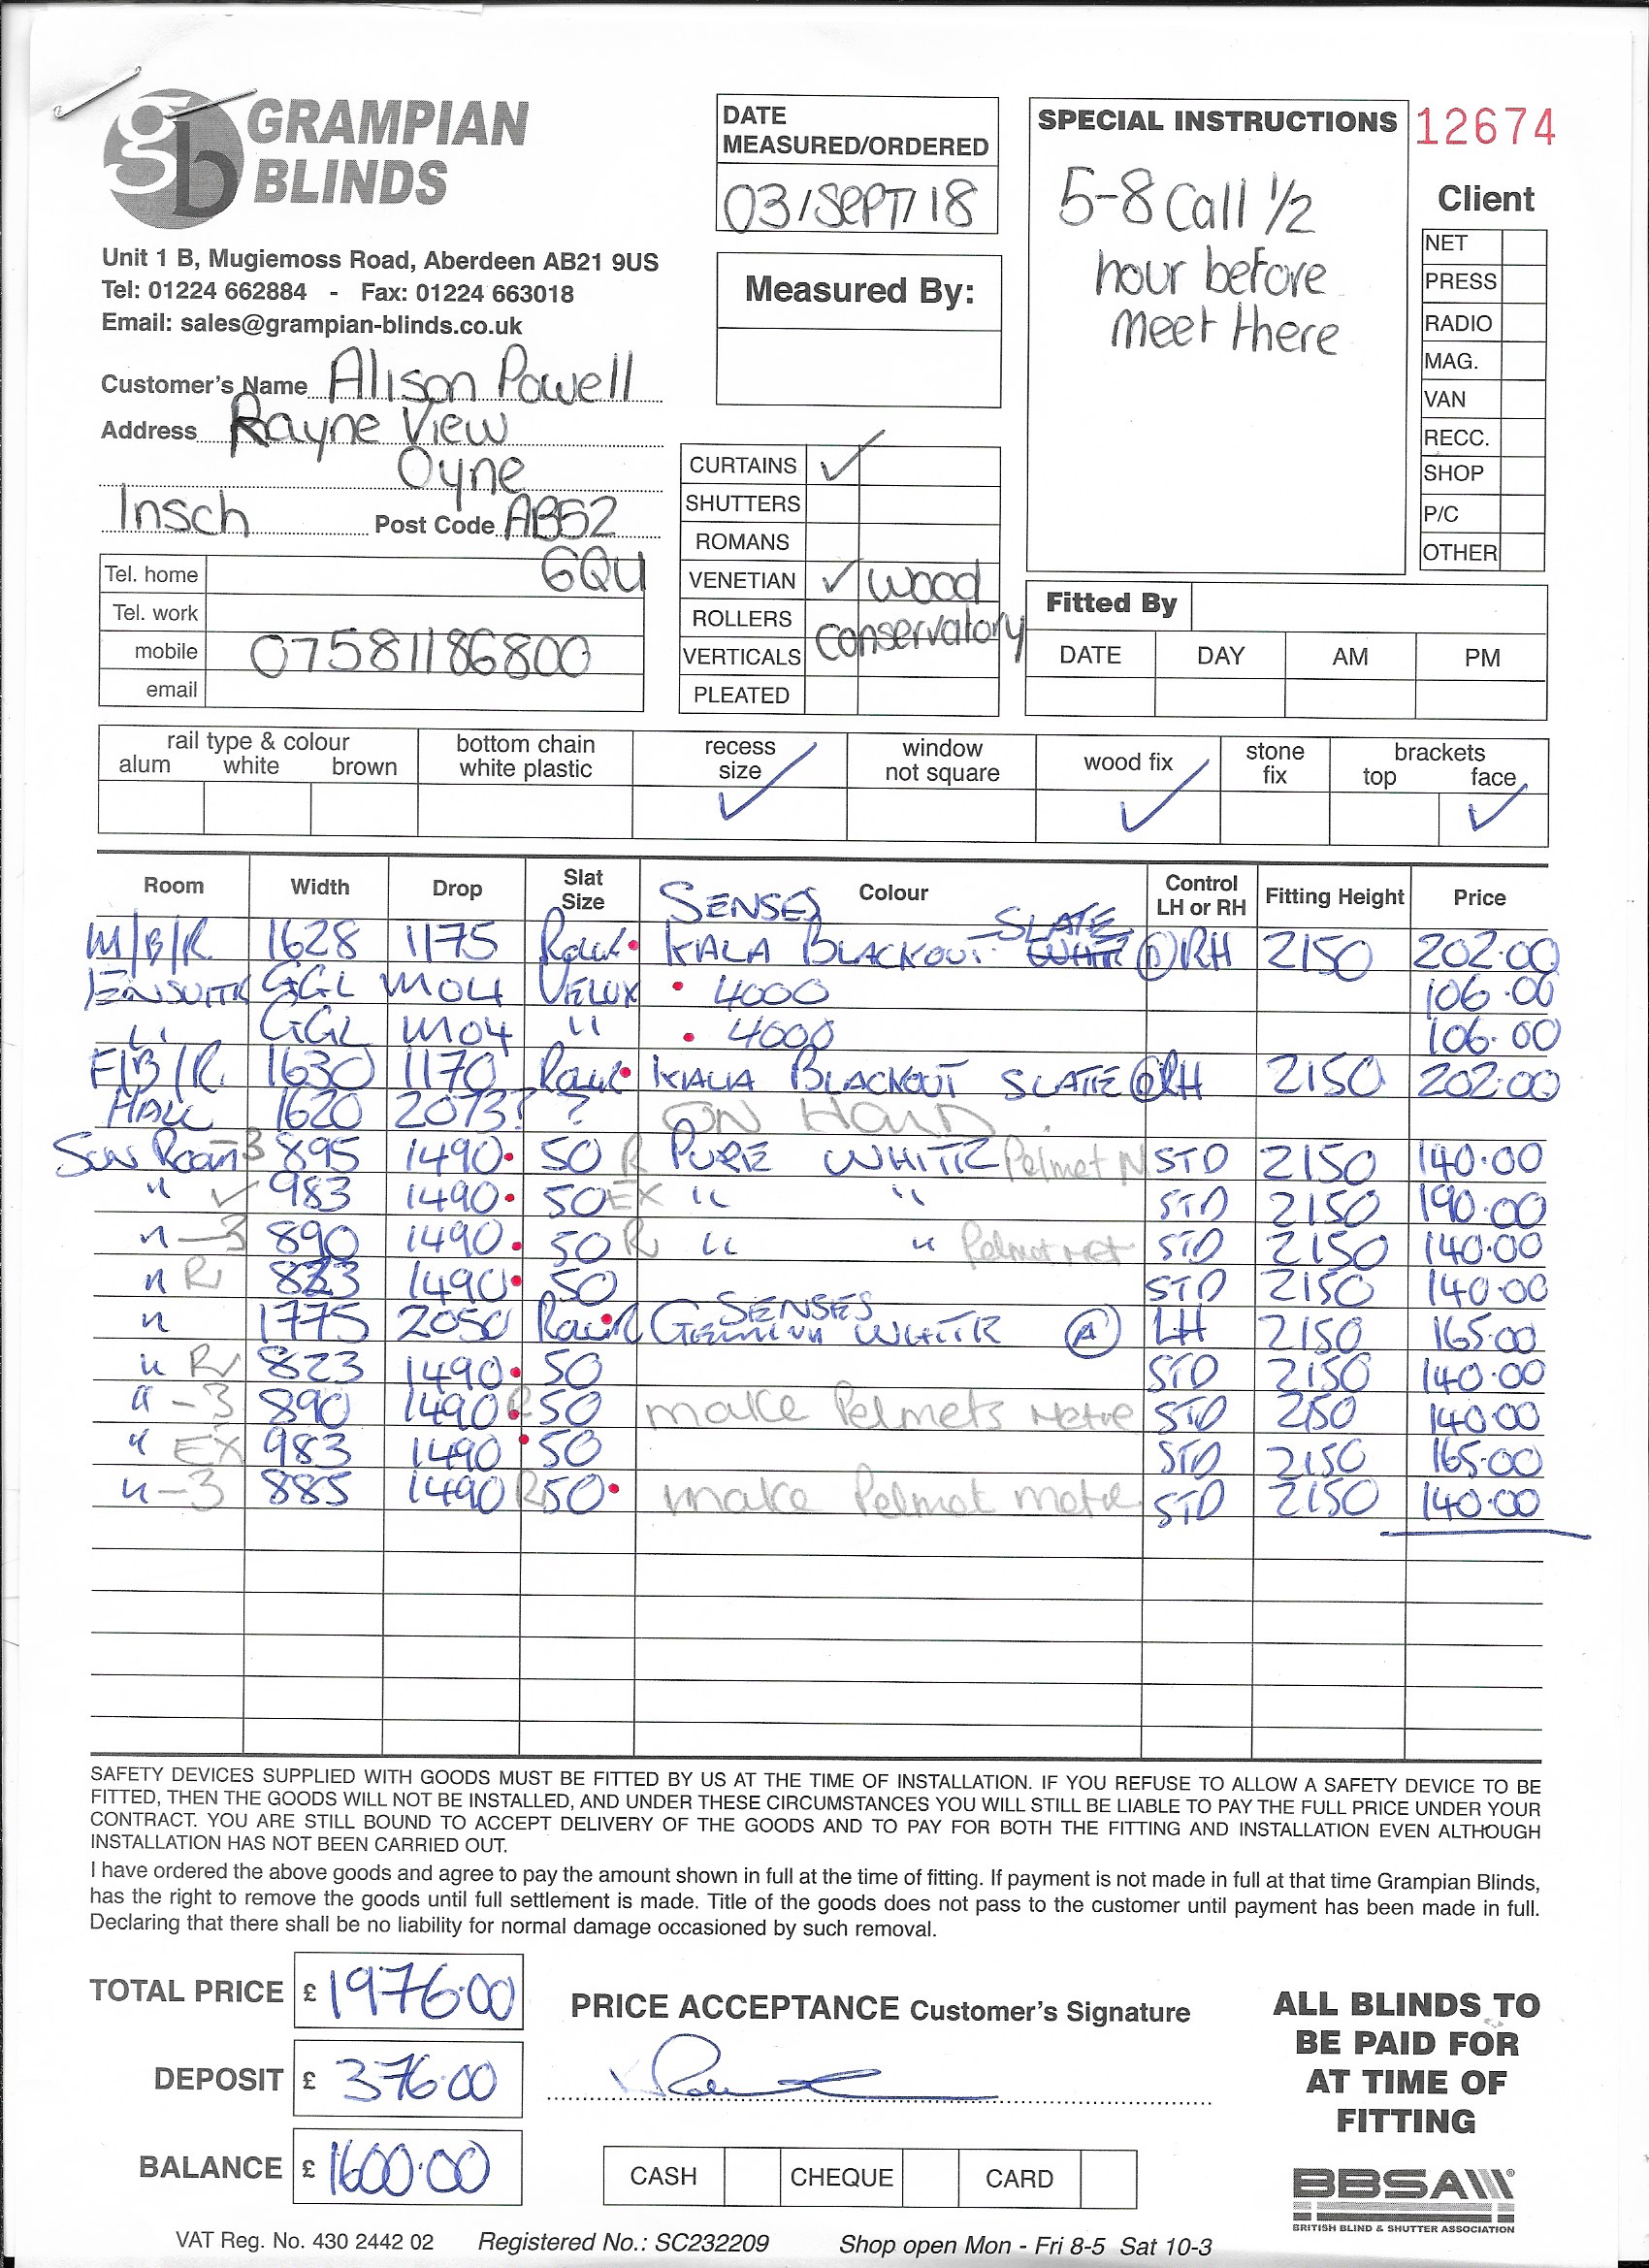 gb GRAMPIAN
BLINDS
Unit 1 B, Mugiemoss Road, Aberdeen AB21 9US
Tel: 01224 662884 - Fax: 01224 663018
Email: sales@grampian-blinds.co.uk
Customer's Name Alison Powell
Address Rayne View
Oyne
Insch Post Code AB52
6QU
Tel. home
Tel. work
mobile 07581186800
email
DATE
MEASURED/ORDERED
03/SEPT/18
Measured By:
CURTAINS ✓
SHUTTERS
ROMANS
VENETIAN ✓ wood
ROLLERS
conservatory
VERTICALS
PLEATED
SPECIAL INSTRUCTIONS
5-8 Call 1/2
hour before
meet there
12674
Client
NET
PRESS
RADIO
MAG.
VAN
RECC.
SHOP
P/C
OTHER
Fitted By
DATE DAY AM PM
rail type & colour
alum white brown
bottom chain
white plastic
recess
size ✓
window
not square
wood fix ✓
stone
fix
brackets
top face ✓
Room Width Drop Slat Size Colour Control LH or RH Fitting Height Price
SENSES
SLATE
M/B/R 1628 1175 KIALA BLACKOUT RH 2150 202.00
ENSUITE GGL M04 VELUX 4000 106.00
" GGL M04 " 4000 106.00
F/B/R 1630 1170 KIALA BLACKOUT SLATE RH 2150 202.00
HALL 1620 2073? ? ON HOLD
SUN ROOM -3 895 1490 50 R PURE WHITE Pelmet N STD 2150 140.00
" ✓ 983 1490 50 EX " " STD 2150 190.00
" -3 890 1490 50 R " " Pelmet STD 2150 140.00
" R 823 1490 50 STD 2150 140.00
SENSES
" 1775 2050 WHITE A LH 2150 165.00
" R 823 1490 50 STD 2150 140.00
" -3 890 1490 R 50 make Pelmets STD 2150 140.00
" EX 983 1490 50 STD 2150 165.00
" -3 885 1490 R 50 make Pelmet STD 2150 140.00
SAFETY DEVICES SUPPLIED WITH GOODS MUST BE FITTED BY US AT THE TIME OF INSTALLATION. IF YOU REFUSE TO ALLOW A SAFETY DEVICE TO BE
FITTED, THEN THE GOODS WILL NOT BE INSTALLED, AND UNDER THESE CIRCUMSTANCES YOU WILL STILL BE LIABLE TO PAY THE FULL PRICE UNDER YOUR
CONTRACT. YOU ARE STILL BOUND TO ACCEPT DELIVERY OF THE GOODS AND TO PAY FOR BOTH THE FITTING AND INSTALLATION EVEN ALTHOUGH
INSTALLATION HAS NOT BEEN CARRIED OUT.
I have ordered the above goods and agree to pay the amount shown in full at the time of fitting. If payment is not made in full at that time Grampian Blinds,
has the right to remove the goods until full settlement is made. Title of the goods does not pass to the customer until payment has been made in full.
Declaring that there shall be no liability for normal damage occasioned by such removal.
TOTAL PRICE £ 1976.00
DEPOSIT £ 376.00
BALANCE £ 1600.00
PRICE ACCEPTANCE Customer's Signature
CASH CHEQUE CARD
ALL BLINDS TO
BE PAID FOR
AT TIME OF
FITTING
BBSA
BRITISH BLIND & SHUTTER ASSOCIATION
VAT Reg. No. 430 2442 02 Registered No.: SC232209 Shop open Mon - Fri 8-5 Sat 10-3